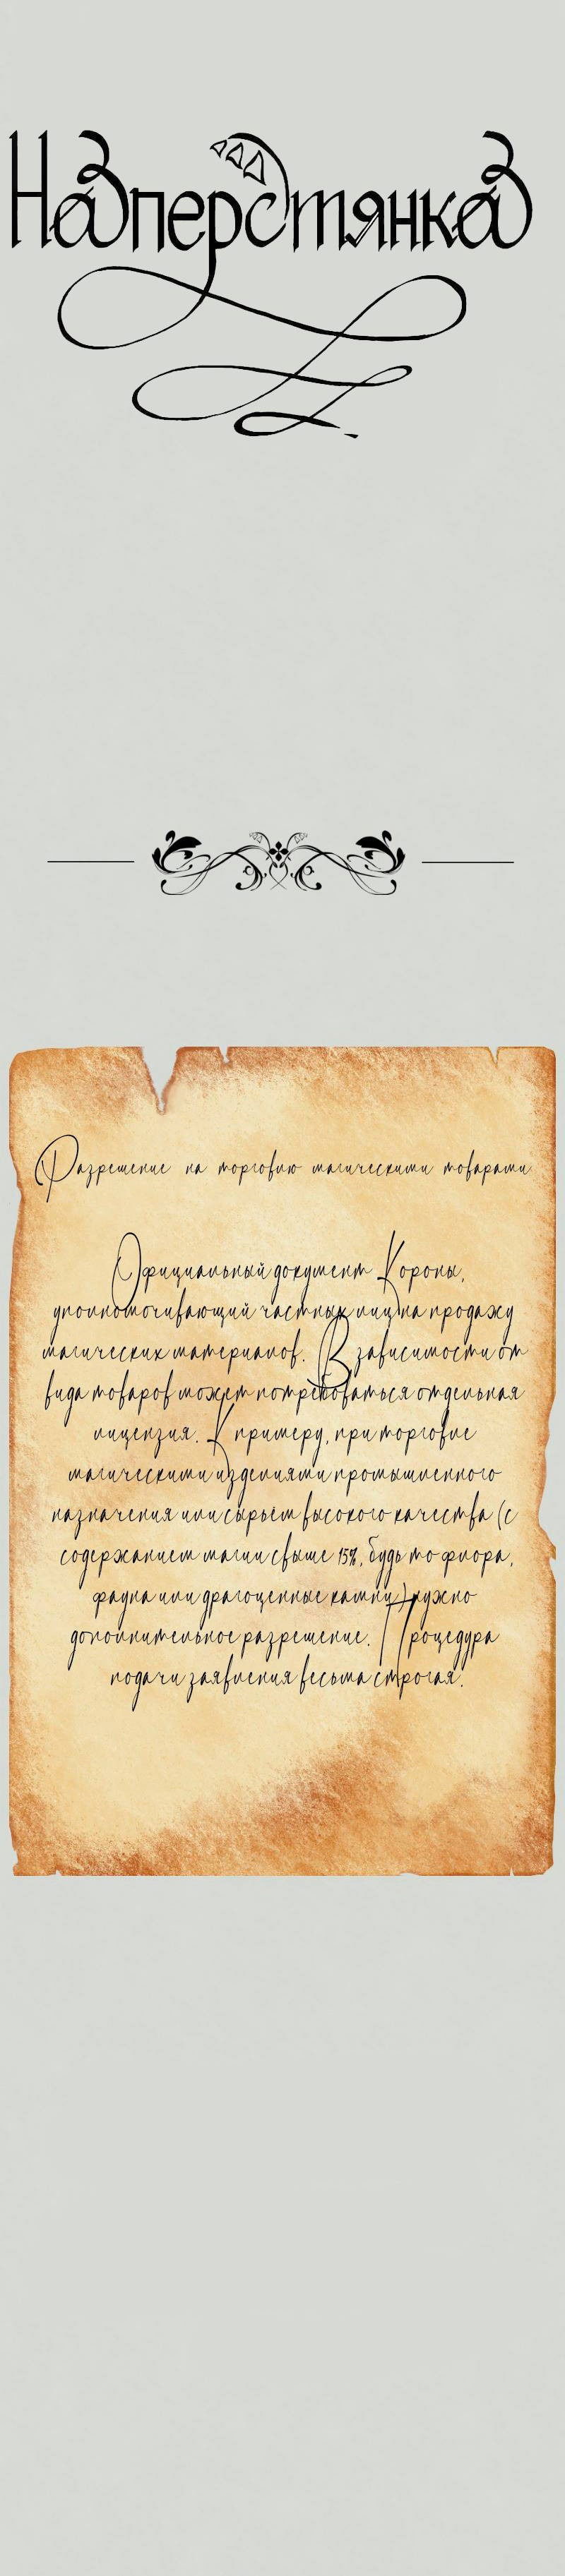 Наперстянка
Разрешение на торговлю магическими товарами
Официальный документ Короны,
уполномочивающий частных лиц на продажу
магических материалов. В зависимости от
вида товаров может потребоваться отдельная
лицензия. К примеру, при торговле
магическими изделиями промышленного
назначения или сырьём высокого качества (с
содержанием магии свыше 15%, будь то флора,
фауна или драгоценные камни) нужно
дополнительное разрешение. Процедура
подачи заявления весьма строгая.